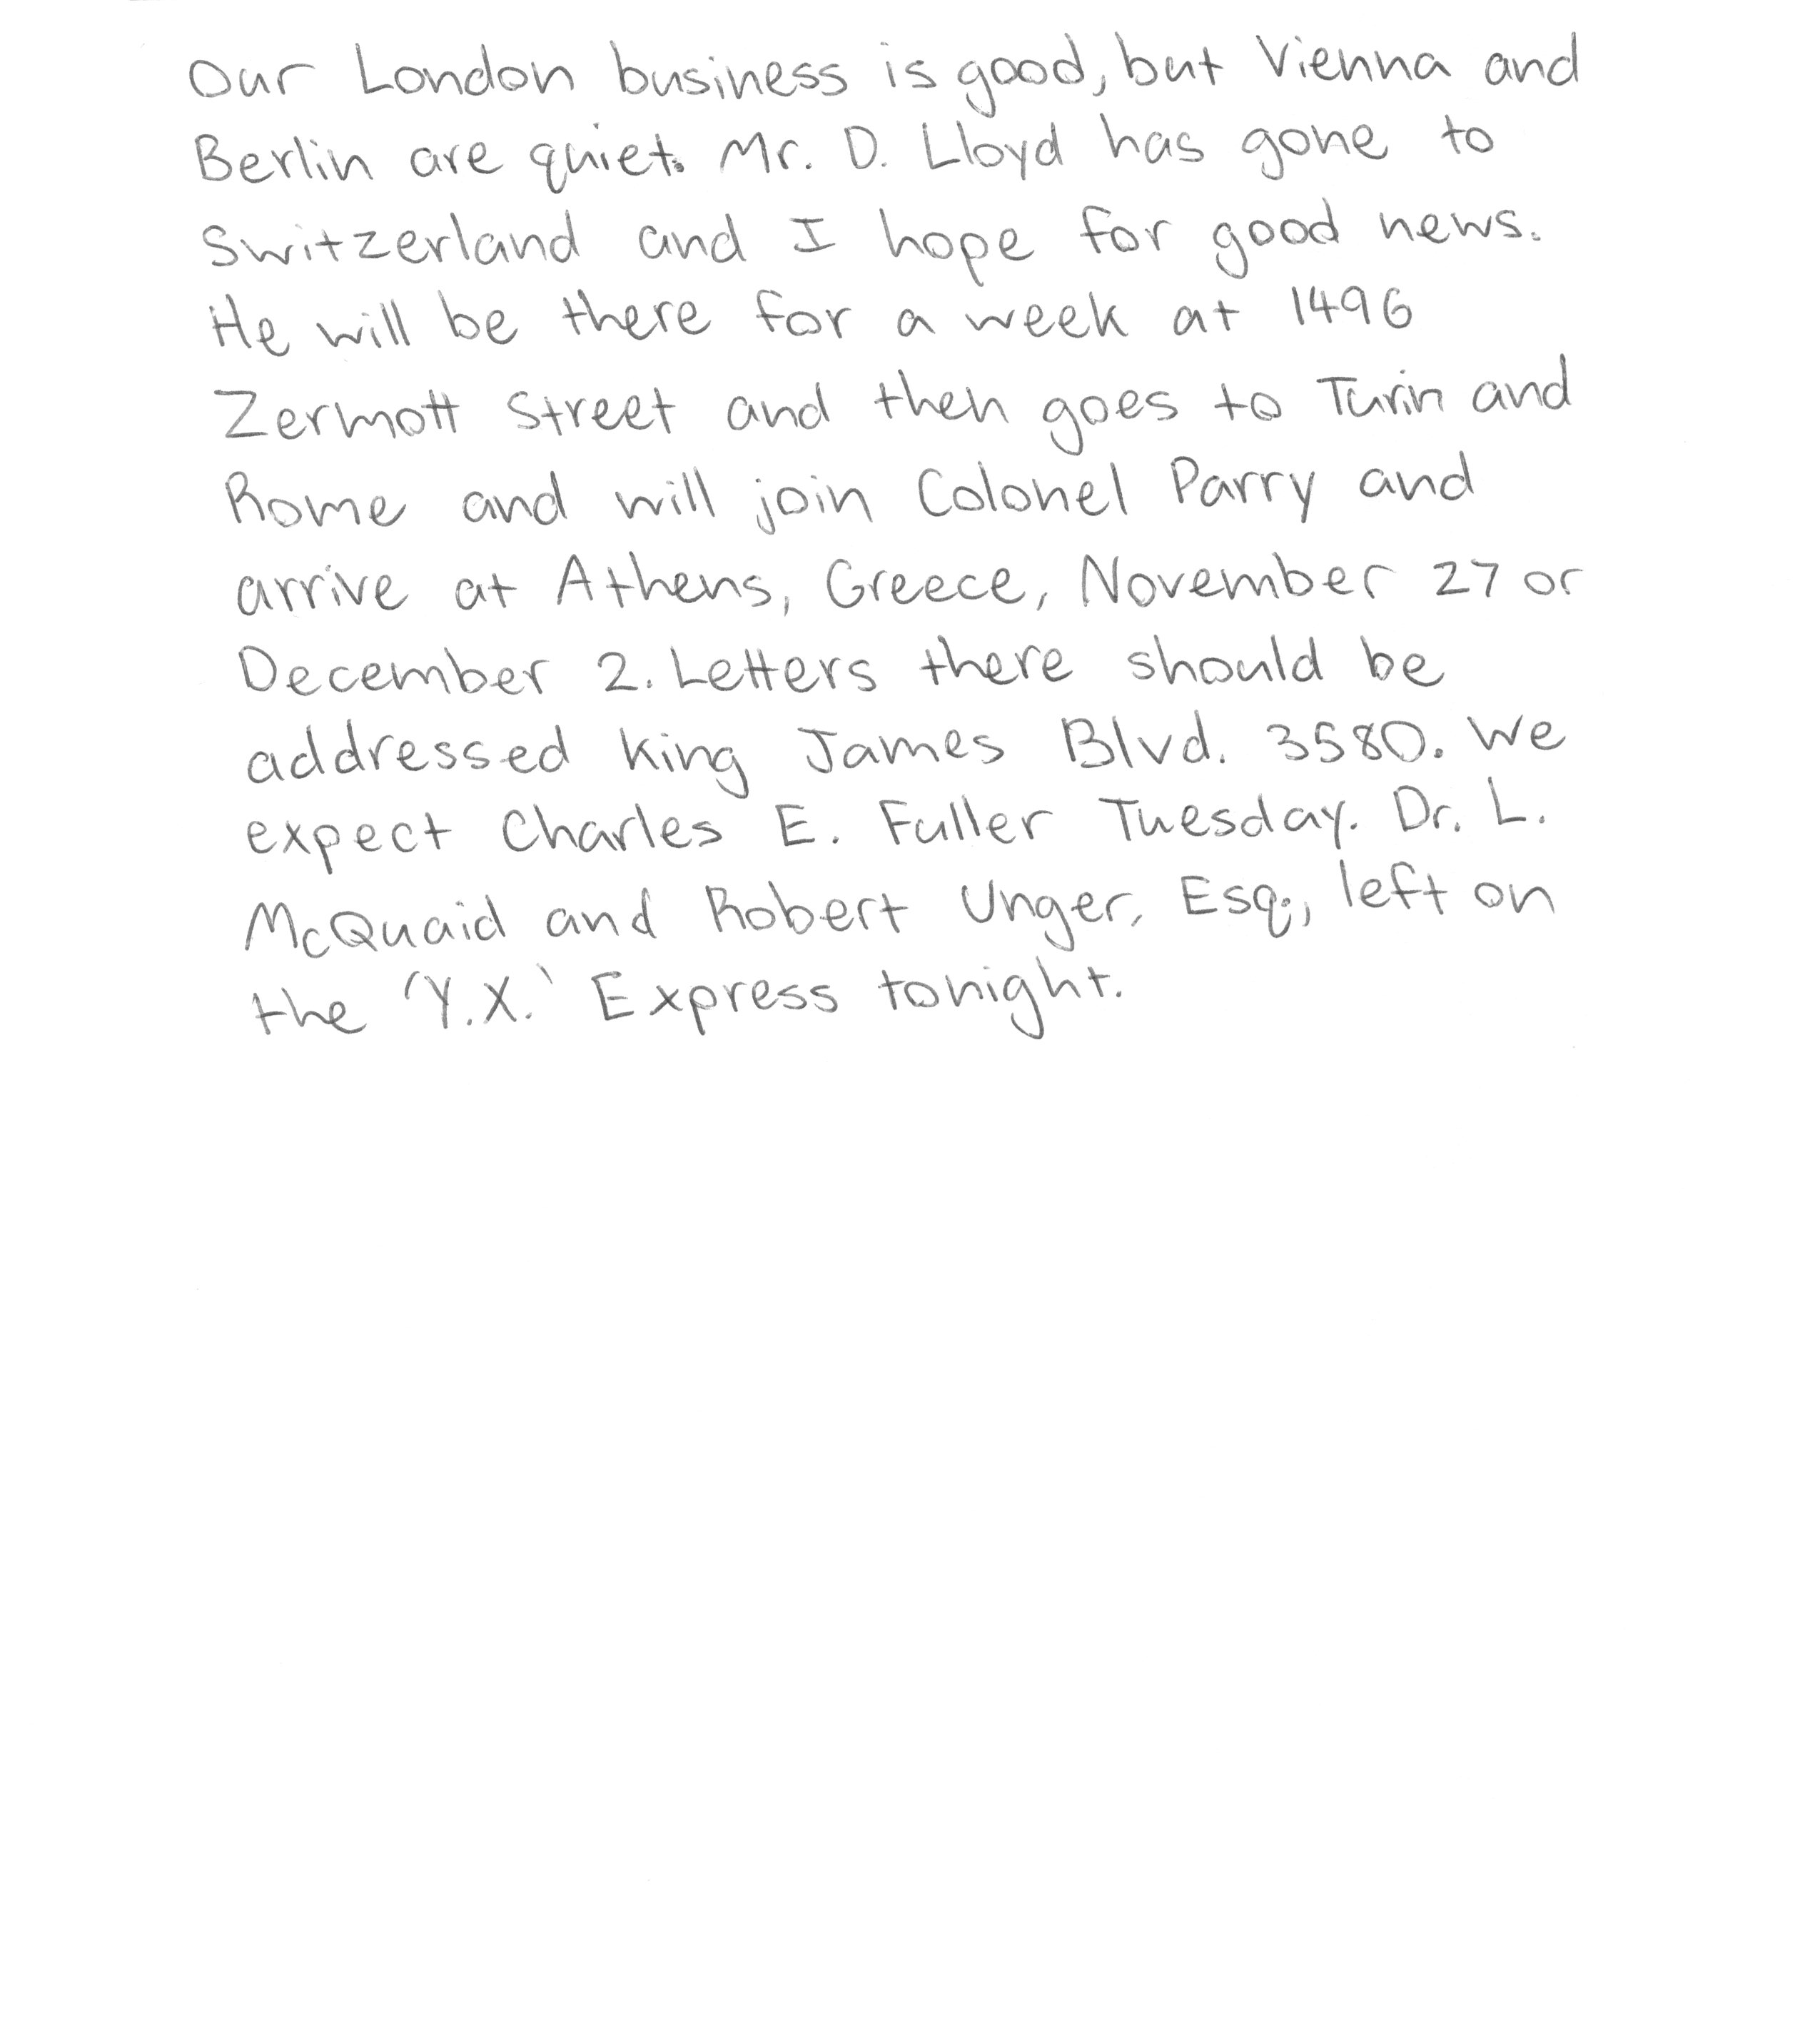 Our London business is good, but Vienna and
Berlin are quiet. Mr. D. Lloyd has gone to
Switzerland and I hope for good news.
He will be there for a week at 1496
Zermott Street and then goes to Turin and
Rome and will join Colonel Parry and
arrive at Athens, Greece, November 27 or
December 2. Letters there should be
addressed King James Blvd. 3580. We
expect Charles E. Fuller Tuesday. Dr. L.
McQuaid and Robert Unger, Esq., left on
the 'Y.X.' Express tonight.